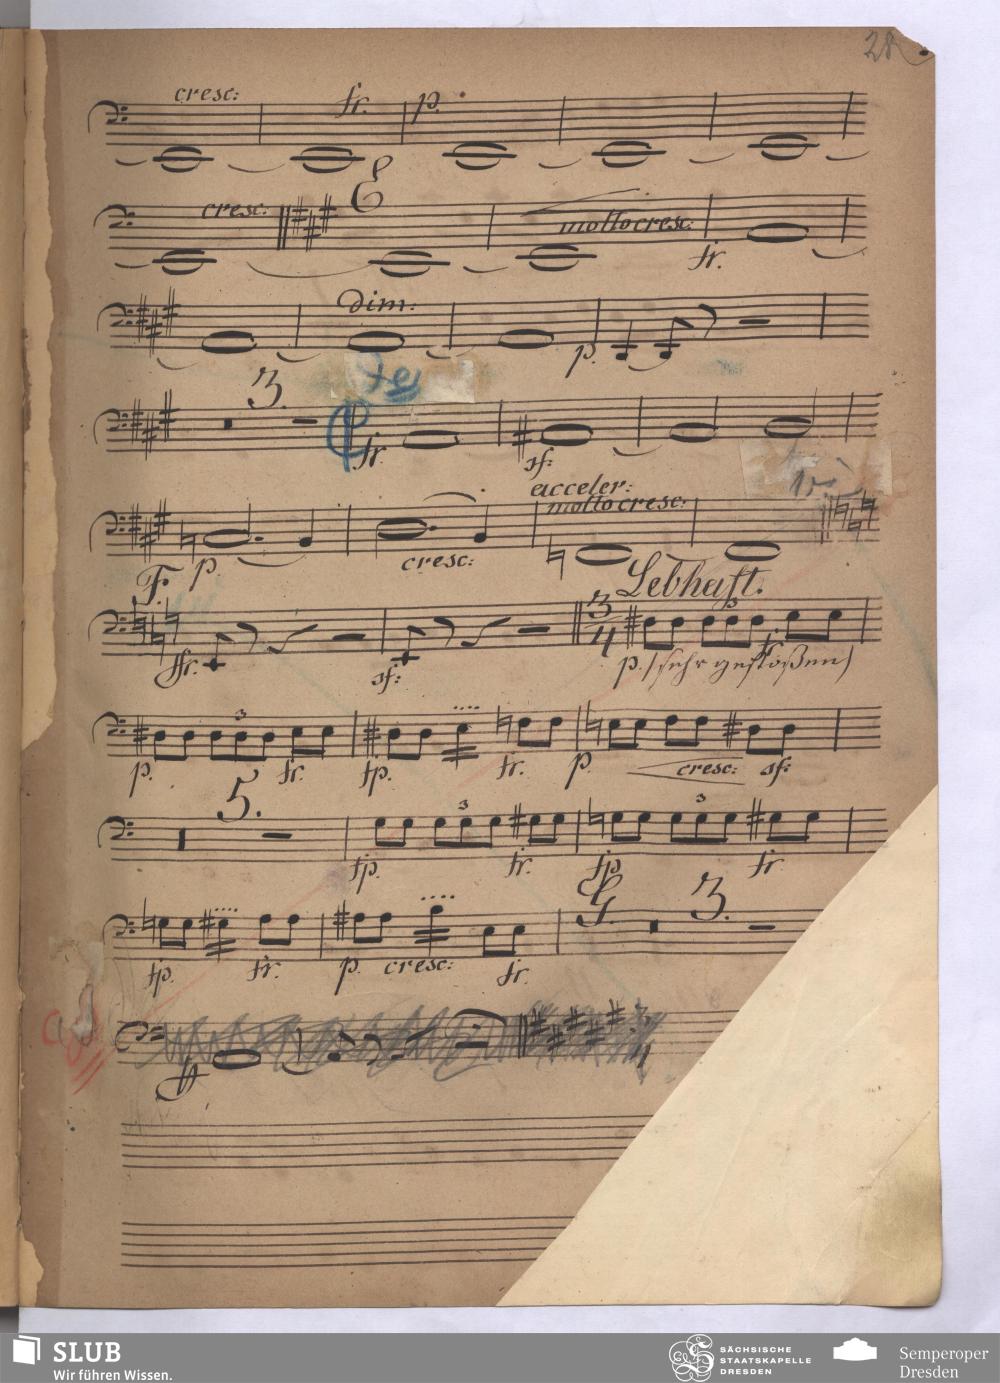 28
cresc: fr. p.
cresc: E molto cresc: fr.
dim: p.
3. fr. sf:
acceler:
p cresc: molto cresc:
F. Lebhaft.
ffr. sf: 3/4 3 p. (sehr gestoßen) fr.
p. 3 fr. fp. fr. p. cresc: sf:
5. fp. 3 fr. fp 3 fr.
fp. fr. p. cresc: fr. G. 3.
SLUB
Wir führen Wissen.
SÄCHSISCHE
STAATSKAPELLE
DRESDEN
Semperoper
Dresden